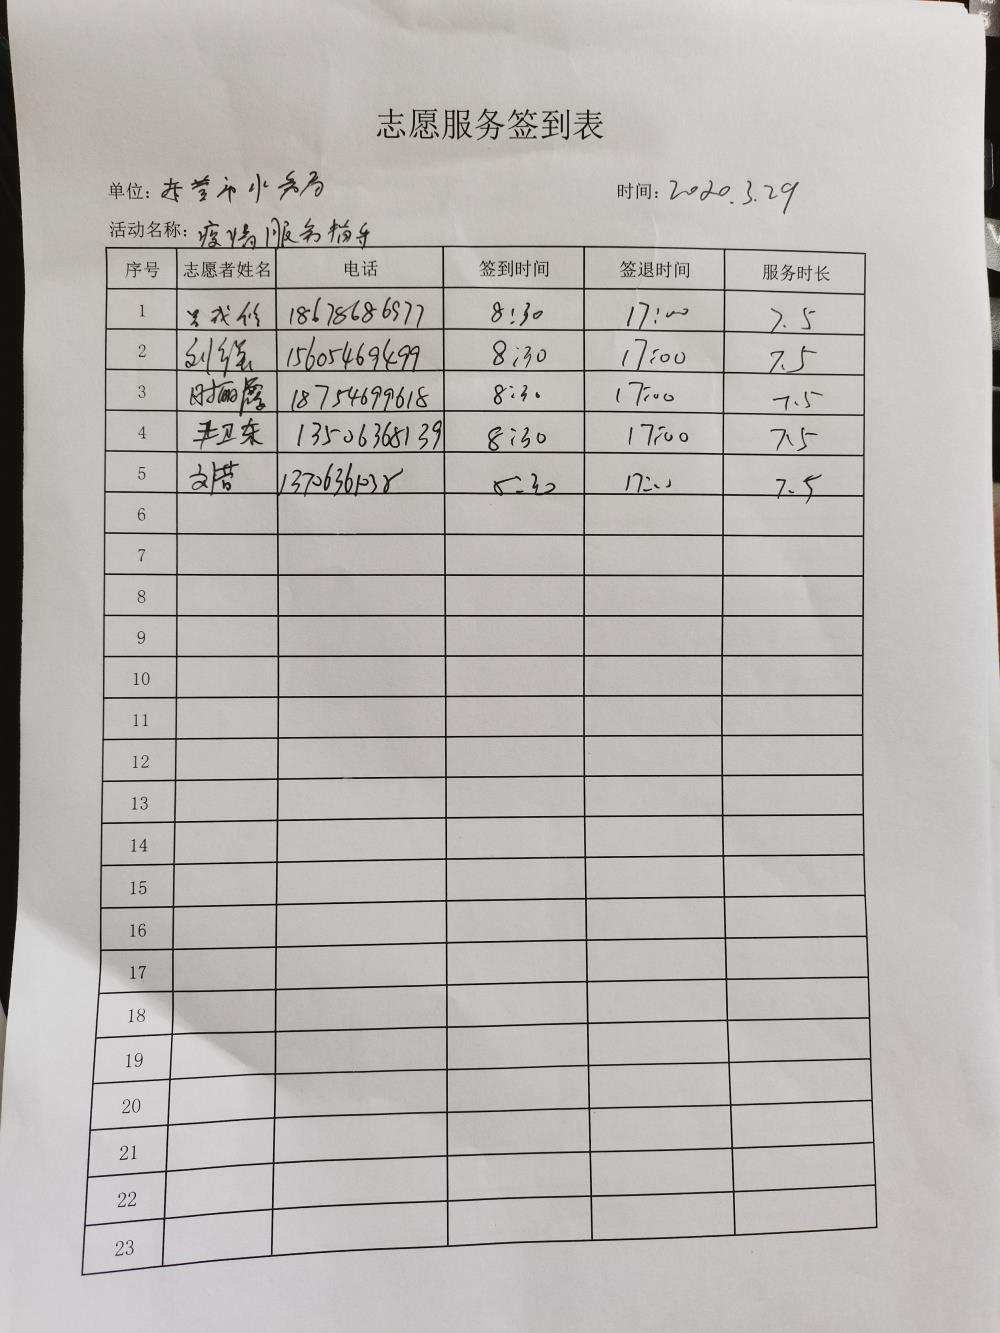 志愿服务签到表
单位: 东营市水务局 时间: 2020.3.29
活动名称: 疫情服务指导
序号 志愿者姓名 电话 签到时间 签退时间 服务时长
1 18678686977 8:30 17:00 7.5
2 刘 15605469499 8:30 17:00 7.5
3 时丽霞 18754699618 8:30 17:00 7.5
4 卫东 13506368139 8:30 17:00 7.5
5 文 8:30 17:00 7.5
6
7
8
9
10
11
12
13
14
15
16
17
18
19
20
21
22
23